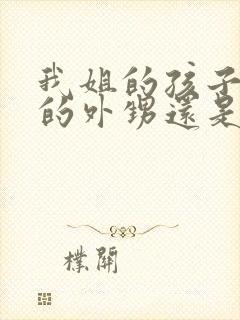 我姐的孩子
的外甥還是
樸開